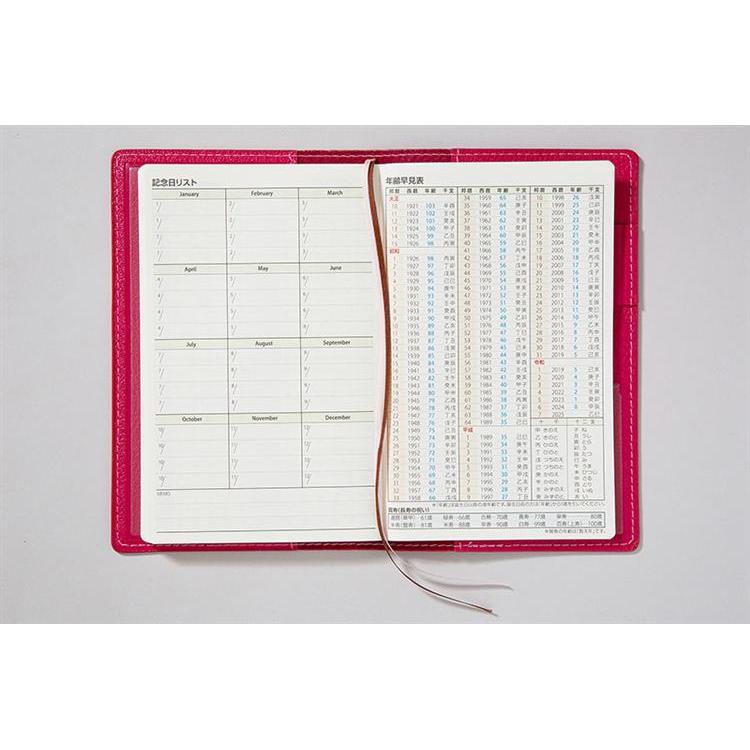 記念日リスト
January February March
1/ 2/ 3/
1/ 2/ 3/
1/ 2/ 3/
1/ 2/ 3/
April May June
4/ 5/ 6/
4/ 5/ 6/
4/ 5/ 6/
4/ 5/ 6/
July August September
7/ 8/ 9/
7/ 8/ 9/
7/ 8/ 9/
7/ 8/ 9/
October November December
10/ 11/ 12/
10/ 11/ 12/
10/ 11/ 12/
10/ 11/ 12/
MEMO
年齢早見表
邦暦 西暦 年齢 干支
大正
10 1921 103 辛酉
11 1922 102 壬戌
12 1923 101 癸亥
13 1924 100 甲子
14 1925 99 乙丑
15 1926 98 丙寅
昭和
1 1926 98 丙寅
2 1927 97 丁卯
3 1928 96 戊辰
4 1929 95 己巳
5 1930 94 庚午
6 1931 93 辛未
7 1932 92 壬申
8 1933 91 癸酉
9 1934 90 甲戌
10 1935 89 乙亥
11 1936 88 丙子
12 1937 87 丁丑
13 1938 86 戊寅
14 1939 85 己卯
15 1940 84 庚辰
16 1941 83 辛巳
17 1942 82 壬午
18 1943 81 癸未
19 1944 80 甲申
20 1945 79 乙酉
21 1946 78 丙戌
22 1947 77 丁亥
23 1948 76 戊子
24 1949 75 己丑
25 1950 74 庚寅
26 1951 73 辛卯
27 1952 72 壬辰
28 1953 71 癸巳
29 1954 70 甲午
30 1955 69 乙未
31 1956 68 丙申
32 1957 67 丁酉
33 1958 66 戊戌
邦暦 西暦 年齢 干支
34 1959 65 己亥
35 1960 64 庚子
36 1961 63 辛丑
37 1962 62 壬寅
38 1963 61 癸卯
39 1964 60 甲辰
40 1965 59 乙巳
41 1966 58 丙午
42 1967 57 丁未
43 1968 56 戊申
44 1969 55 己酉
45 1970 54 庚戌
46 1971 53 辛亥
47 1972 52 壬子
48 1973 51 癸丑
49 1974 50 甲寅
50 1975 49 乙卯
51 1976 48 丙辰
52 1977 47 丁巳
53 1978 46 戊午
54 1979 45 己未
55 1980 44 庚申
56 1981 43 辛酉
57 1982 42 壬戌
58 1983 41 癸亥
59 1984 40 甲子
60 1985 39 乙丑
61 1986 38 丙寅
62 1987 37 丁卯
63 1988 36 戊辰
64 1989 35 己巳
平成
1 1989 35 己巳
2 1990 34 庚午
3 1991 33 辛未
4 1992 32 壬申
5 1993 31 癸酉
6 1994 30 甲戌
7 1995 29 乙亥
8 1996 28 丙子
9 1997 27 丁丑
邦暦 西暦 年齢 干支
10 1998 26 戊寅
11 1999 25 己卯
12 2000 24 庚辰
13 2001 23 辛巳
14 2002 22 壬午
15 2003 21 癸未
16 2004 20 甲申
17 2005 19 乙酉
18 2006 18 丙戌
19 2007 17 丁亥
20 2008 16 戊子
21 2009 15 己丑
22 2010 14 庚寅
23 2011 13 辛卯
24 2012 12 壬辰
25 2013 11 癸巳
26 2014 10 甲午
27 2015 9 乙未
28 2016 8 丙申
29 2017 7 丁酉
30 2018 6 戊戌
31 2019 5 己亥
令和
1 2019 5 己亥
2 2020 4 庚子
3 2021 3 辛丑
4 2022 2 壬寅
5 2023 1 癸卯
6 2024 0 甲辰
7 2025 乙巳
十干 十二支
甲 きのえ
乙 きのと
丙 ひのえ
丁 ひのと
戊 つちのえ
己 つちのと
庚 かのえ
辛 かのと
壬 みずのえ
癸 みずのと
子 ね
丑 うし
寅 とら
卯 う
辰 たつ
巳 み
午 うま
未 ひつじ
申 さる
酉 とり
戌 いぬ
亥 い
賀寿(長寿の祝い)
還暦(華甲)…61歳 緑寿…66歳 古稀…70歳 喜寿…77歳 傘寿…80歳
半寿(盤寿)…81歳 米寿…88歳 卒寿…90歳 白寿…99歳 百寿(上寿)…100歳
※賀寿の年齢は「数え年」です。